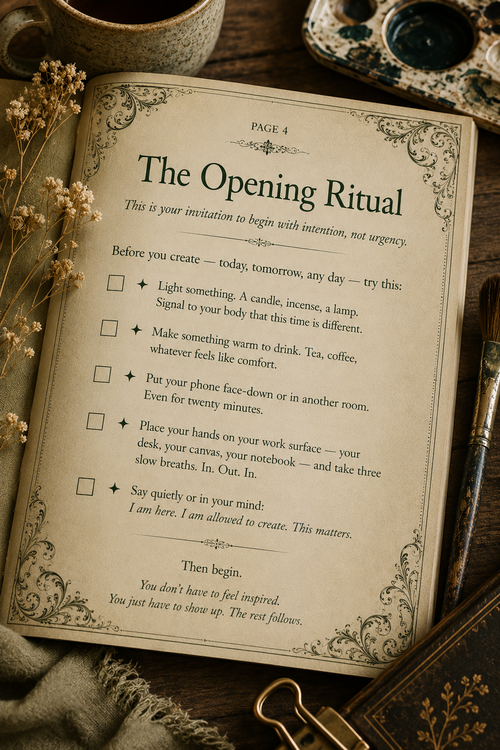 PAGE 4
The Opening Ritual
This is your invitation to begin with intention, not urgency.
Before you create — today, tomorrow, any day — try this:
Light something. A candle, incense, a lamp.
Signal to your body that this time is different.
Make something warm to drink. Tea, coffee,
whatever feels like comfort.
Put your phone face-down or in another room.
Even for twenty minutes.
Place your hands on your work surface — your
desk, your canvas, your notebook — and take three
slow breaths. In. Out. In.
Say quietly or in your mind:
I am here. I am allowed to create. This matters.
Then begin.
You don't have to feel inspired.
You just have to show up. The rest follows.